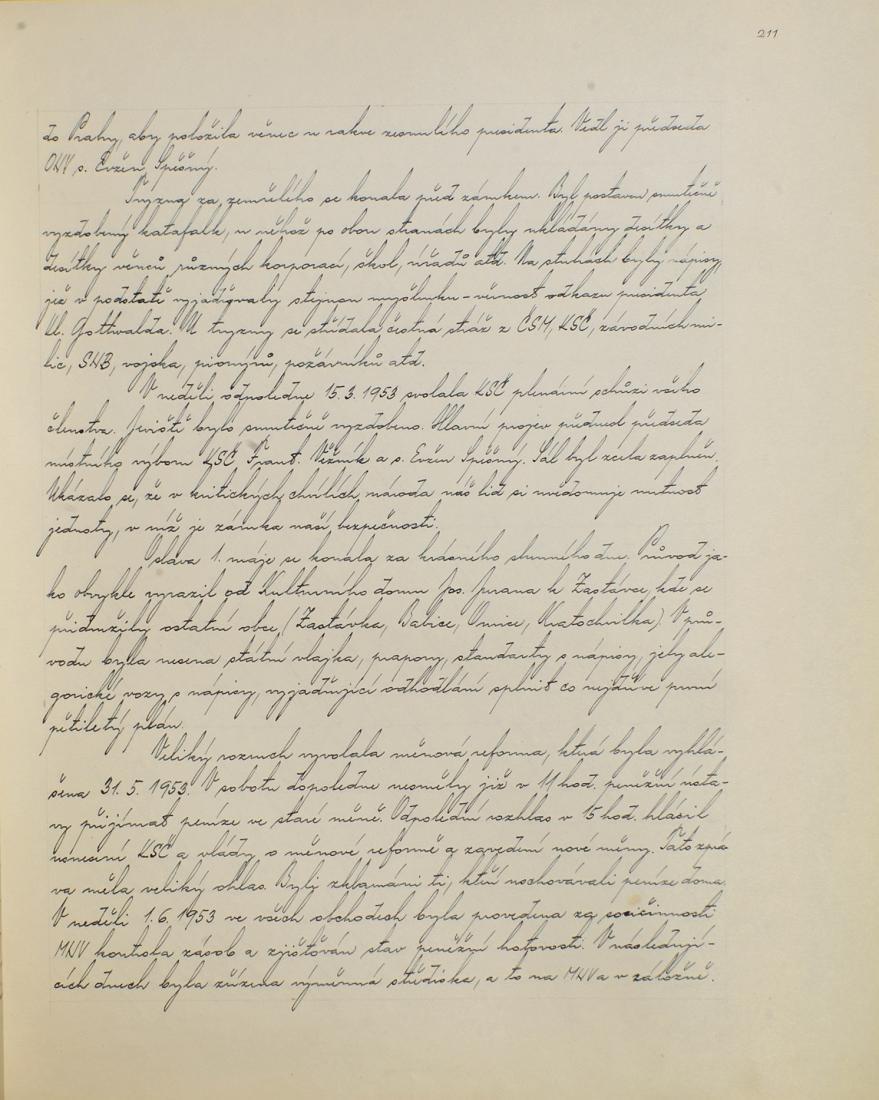 211
do Prahy, aby položila věnec u rakve zesnulého presidenta. Vedl ji předseda
ONV s. Evžen Spěšný.
Tryzna za zemřelého se konala před zámkem. Byl postaven smutečně
vyzdobený katafalk, u něhož po obou stranách byly ukládány desítky a
desítky věnců různých korporací, škol, úřadů atd. Na stuhách byly nápisy,
jež v podstatě vyjadřovaly stejnou myšlenku - věrnost odkazu presidenta
Kl. Gottwalda. U tryzny se střídala čestná stráž z ČSM, KSČ, závodních mi-
lic, SNB, vojska, pionýrů, požárníků atd.
V neděli odpoledne 15. 3. 1953 svolala KSČ plenární schůzi všeho
členstva. Jeviště bylo smutečně vyzdobeno. Hlavní projev přednesl předseda
místního výboru KSČ Frant. Věžník a s. Evžen Spěšný. Sál byl zcela zaplněn.
Ukázalo se, že v kritických chvílích národa náš lid si uvědomuje nutnost
jednoty, v níž je záruka naší bezpečnosti.
Oslava 1. máje se konala za krásného slunného dne. Průvod ja-
ko obvykle vyrazil od Kulturního domu fos. Jurana k Zastávce, kde se
přidružily ostatní obce (Zastávka, Babice, Omice, Kratochvilka). V prů-
vodu byla nesena státní vlajka, prapory, standarty s nápisy, jely ale-
gorické vozy s nápisy, vyjadřující odhodlání splnit co nejdříve první
pětiletý plán.
Veliký rozruch vyvolala měnová reforma, která byla vyhlá-
šena 31. 5. 1953. V sobotu dopoledne nesměly již v 11 hod. peněžní ústa-
vy přijímat peníze ve staré měně. Odpolední rozhlas v 15 hod. hlásil
usnesení KSČ a vlády o měnové reformě a zavedení nové měny. Tato zprá
va měla veliký ohlas. Byli zklamáni ti, kteří uschovávali peníze doma.
V neděli 1. 6. 1953 ve všech obchodech byla provedena za součinnosti
MNV kontrola zásob a zjišťován stav peněžní hotovosti. V následují-
cích dnech byla zřízena výměnná střediska, a to na MNV a v záložně.